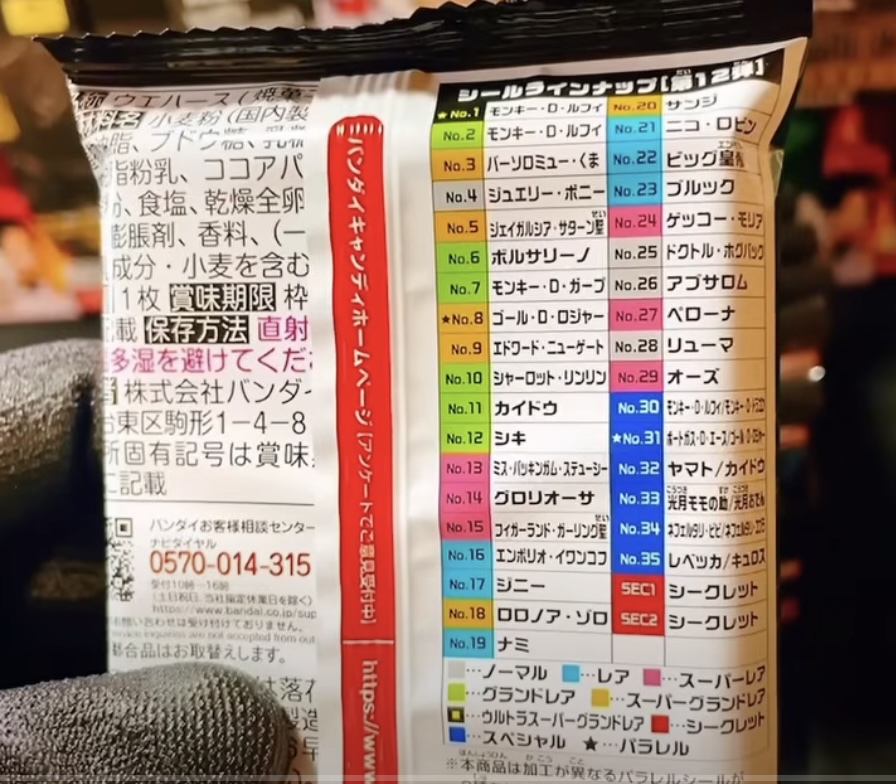 ウエハース(焼菓
小麦粉(国内製
脂、ブドウ糖、乳糖
脂粉乳、ココアパ
、食塩、乾燥全卵
膨脹剤、香料、(一
成分・小麦を含む
1枚 賞味期限 枠
載 保存方法 直射
多湿を避けてくだ
株式会社バンダイ
台東区駒形1-4-8
所固有記号は賞味
に記載
バンダイお客様相談センター
ナビダイヤル
0570-014-315
受付10時~16時
(土日祝日、当社指定休業日を除く)
https://www.bandai.co.jp/sup
お問い合わせは受け付けておりません。
合品はお取替えします。
は落花
製造
バンダイキャンディホームページ[アンケートでご意見受付中]
https://www
シールラインナップ[第12弾]
★No.1 モンキー・D・ルフィ
No.2 モンキー・D・ルフィ
No.3 バーソロミュー・くま
No.4 ジュエリー・ボニー
No.5 ジェイガルシア・サターン聖
No.6 ボルサリーノ
No.7 モンキー・D・ガープ
★No.8 ゴール・D・ロジャー
No.9 エドワード・ニューゲート
No.10 シャーロット・リンリン
No.11 カイドウ
No.12 シキ
No.13 ミス・バッキンガム・ステューシー
No.14 グロリオーサ
No.15 フィガーランド・ガーリング聖
No.16 エンポリオ・イワンコフ
No.17 ジニー
No.18 ロロノア・ゾロ
No.19 ナミ
No.20 サンジ
No.21 ニコ・ロビン
No.22 ビッグ皇帝
No.23 ブルック
No.24 ゲッコー・モリア
No.25 ドクトル・ホグバック
No.26 アブサロム
No.27 ペローナ
No.28 リューマ
No.29 オーズ
No.30 モンキー・D・ルフィ/モンキー・D・ドラゴン
★No.31 ポートガス・D・エース/ゴール・D・ロジャー
No.32 ヤマト/カイドウ
No.33 光月モモの助/光月おでん
No.34 ネフェルタリ・ビビ/ネフェルタリ・コブラ
No.35 レベッカ/キュロス
SEC1 シークレット
SEC2 シークレット
…ノーマル …レア …スーパーレア
…グランドレア …スーパーグランドレア
…ウルトラスーパーグランドレア …シークレット
…スペシャル ★…パラレル
※本商品は加工が異なるパラレルシールが